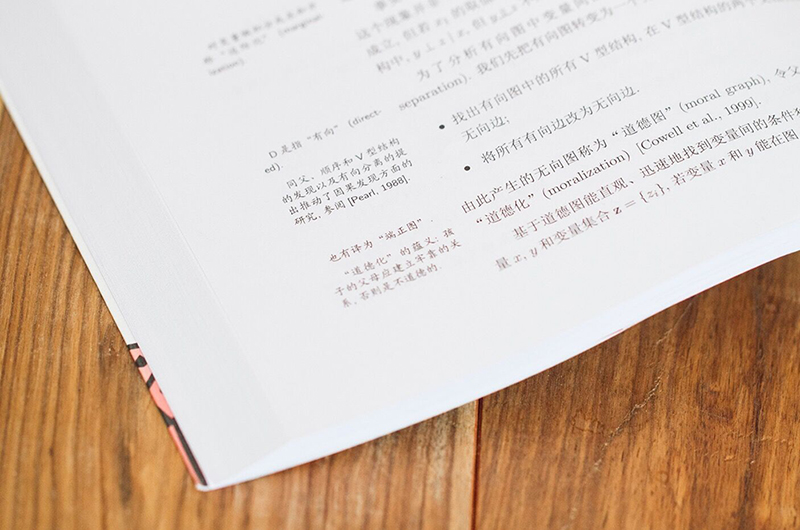 这个现象亦
成立, 但若
构中, y⊥z | x, 但
为了分析有向图中变量间
separation). 我们先把有向图转变为一个
找出有向图中的所有 V 型结构, 在 V 型结构的两个
无向边;
• 将所有有向边改为无向边.
由此产生的无向图称为“道德图”(moral graph), 令父
“道德化”(moralization) [Cowell et al., 1999].
基于道德图能直观、迅速地找到变量间的条件
量 x, y 和变量集合 z = {zᵢ}, 若变量 x 和 y 能在图
ization).
D 是指“有向”(direct-
ed).
同父、顺序和 V 型结构
的发现以及有向分离的提
出推动了因果发现方面的
研究, 参阅 [Pearl, 1988].
也有译为“端正图”.
“道德化”的蕴义: 孩
子的父母应建立牢靠的关
系, 否则是不道德的.